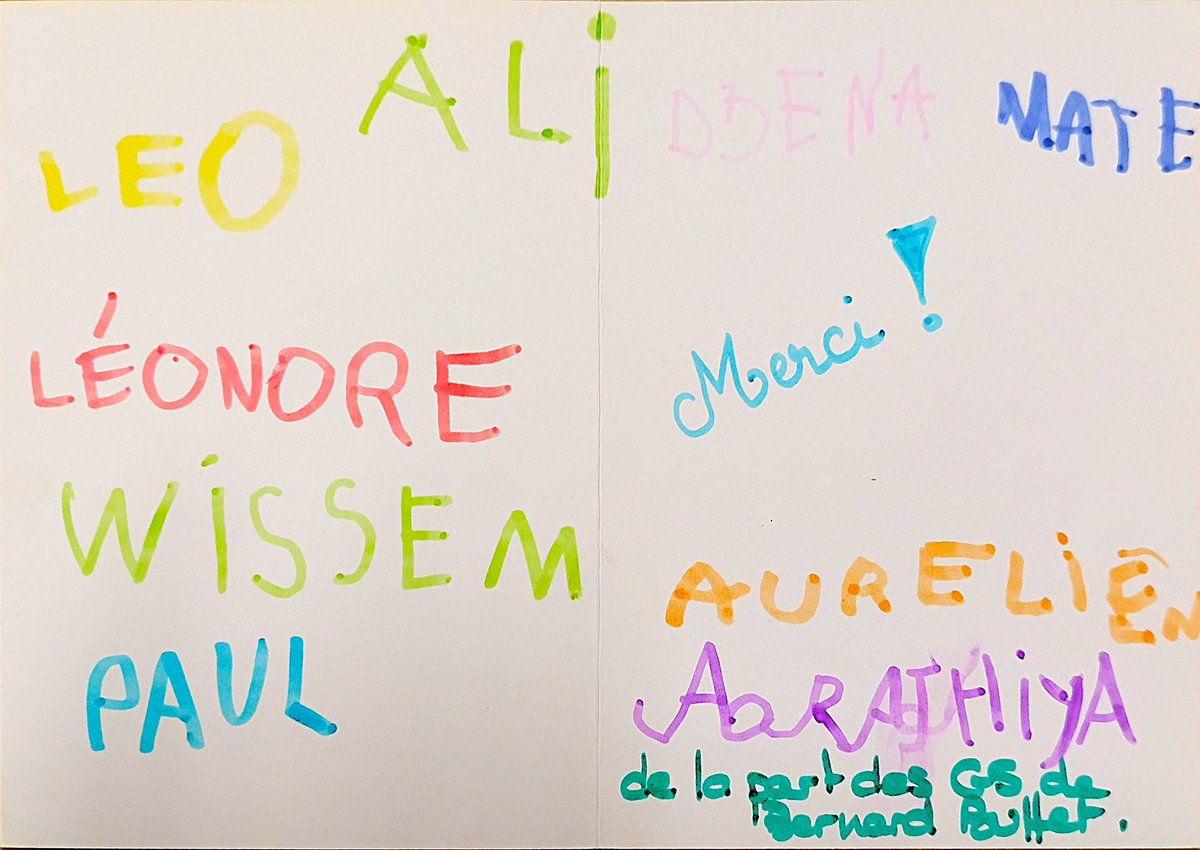 ALi
LEO
LÉONORE
WiSSEM
PAUL
DJENA
MATE
Merci !
AURELiEN
AaRATHiYA
de la part des GS de
Bernard Buffet.